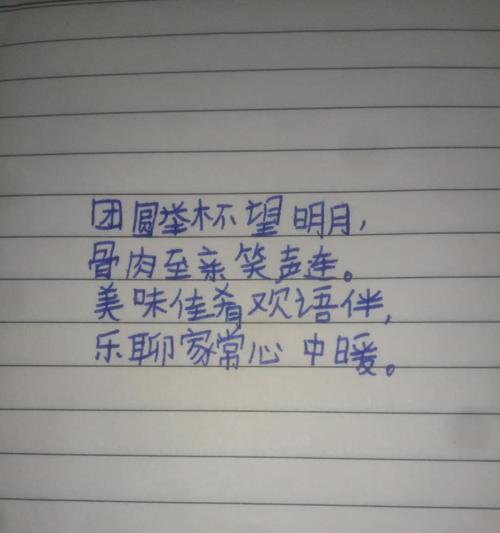 团圆举杯望明月,
骨肉至亲笑声连。
美味佳肴欢语伴,
乐聊家常心中暖。